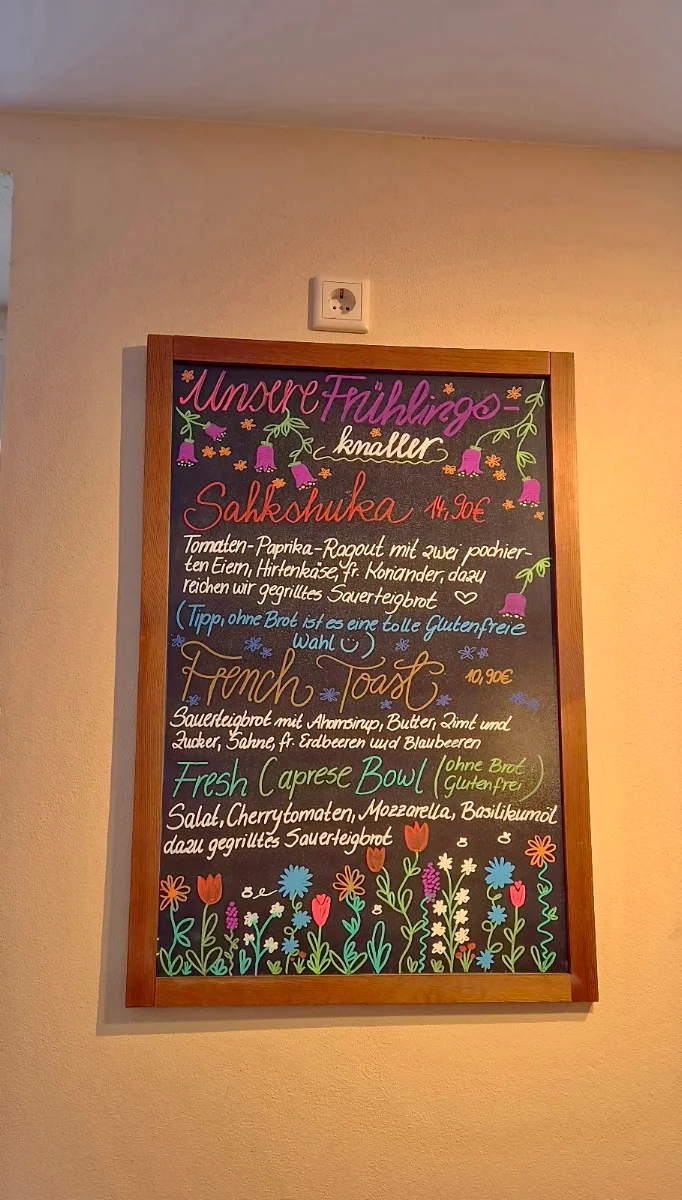 Unsere Frühlings-
knaller
Sahkshuka 14,90€
Tomaten-Paprika-Ragout mit zwei pochier-
ten Eiern, Hirtenkäse, fr. Koriander, dazu
reichen wir gegrilltes Sauerteigbrot ♡
(Tipp, ohne Brot ist es eine tolle Glutenfreie
Wahl ☺)
French Toast 10,90€
Sauerteigbrot mit Ahornsirup, Butter, Zimt und
Zucker, Sahne, fr. Erdbeeren und Blaubeeren
Fresh Caprese Bowl (ohne Brot
Glutenfrei)
Salat, Cherrytomaten, Mozzarella, Basilikumöl
dazu gegrilltes Sauerteigbrot